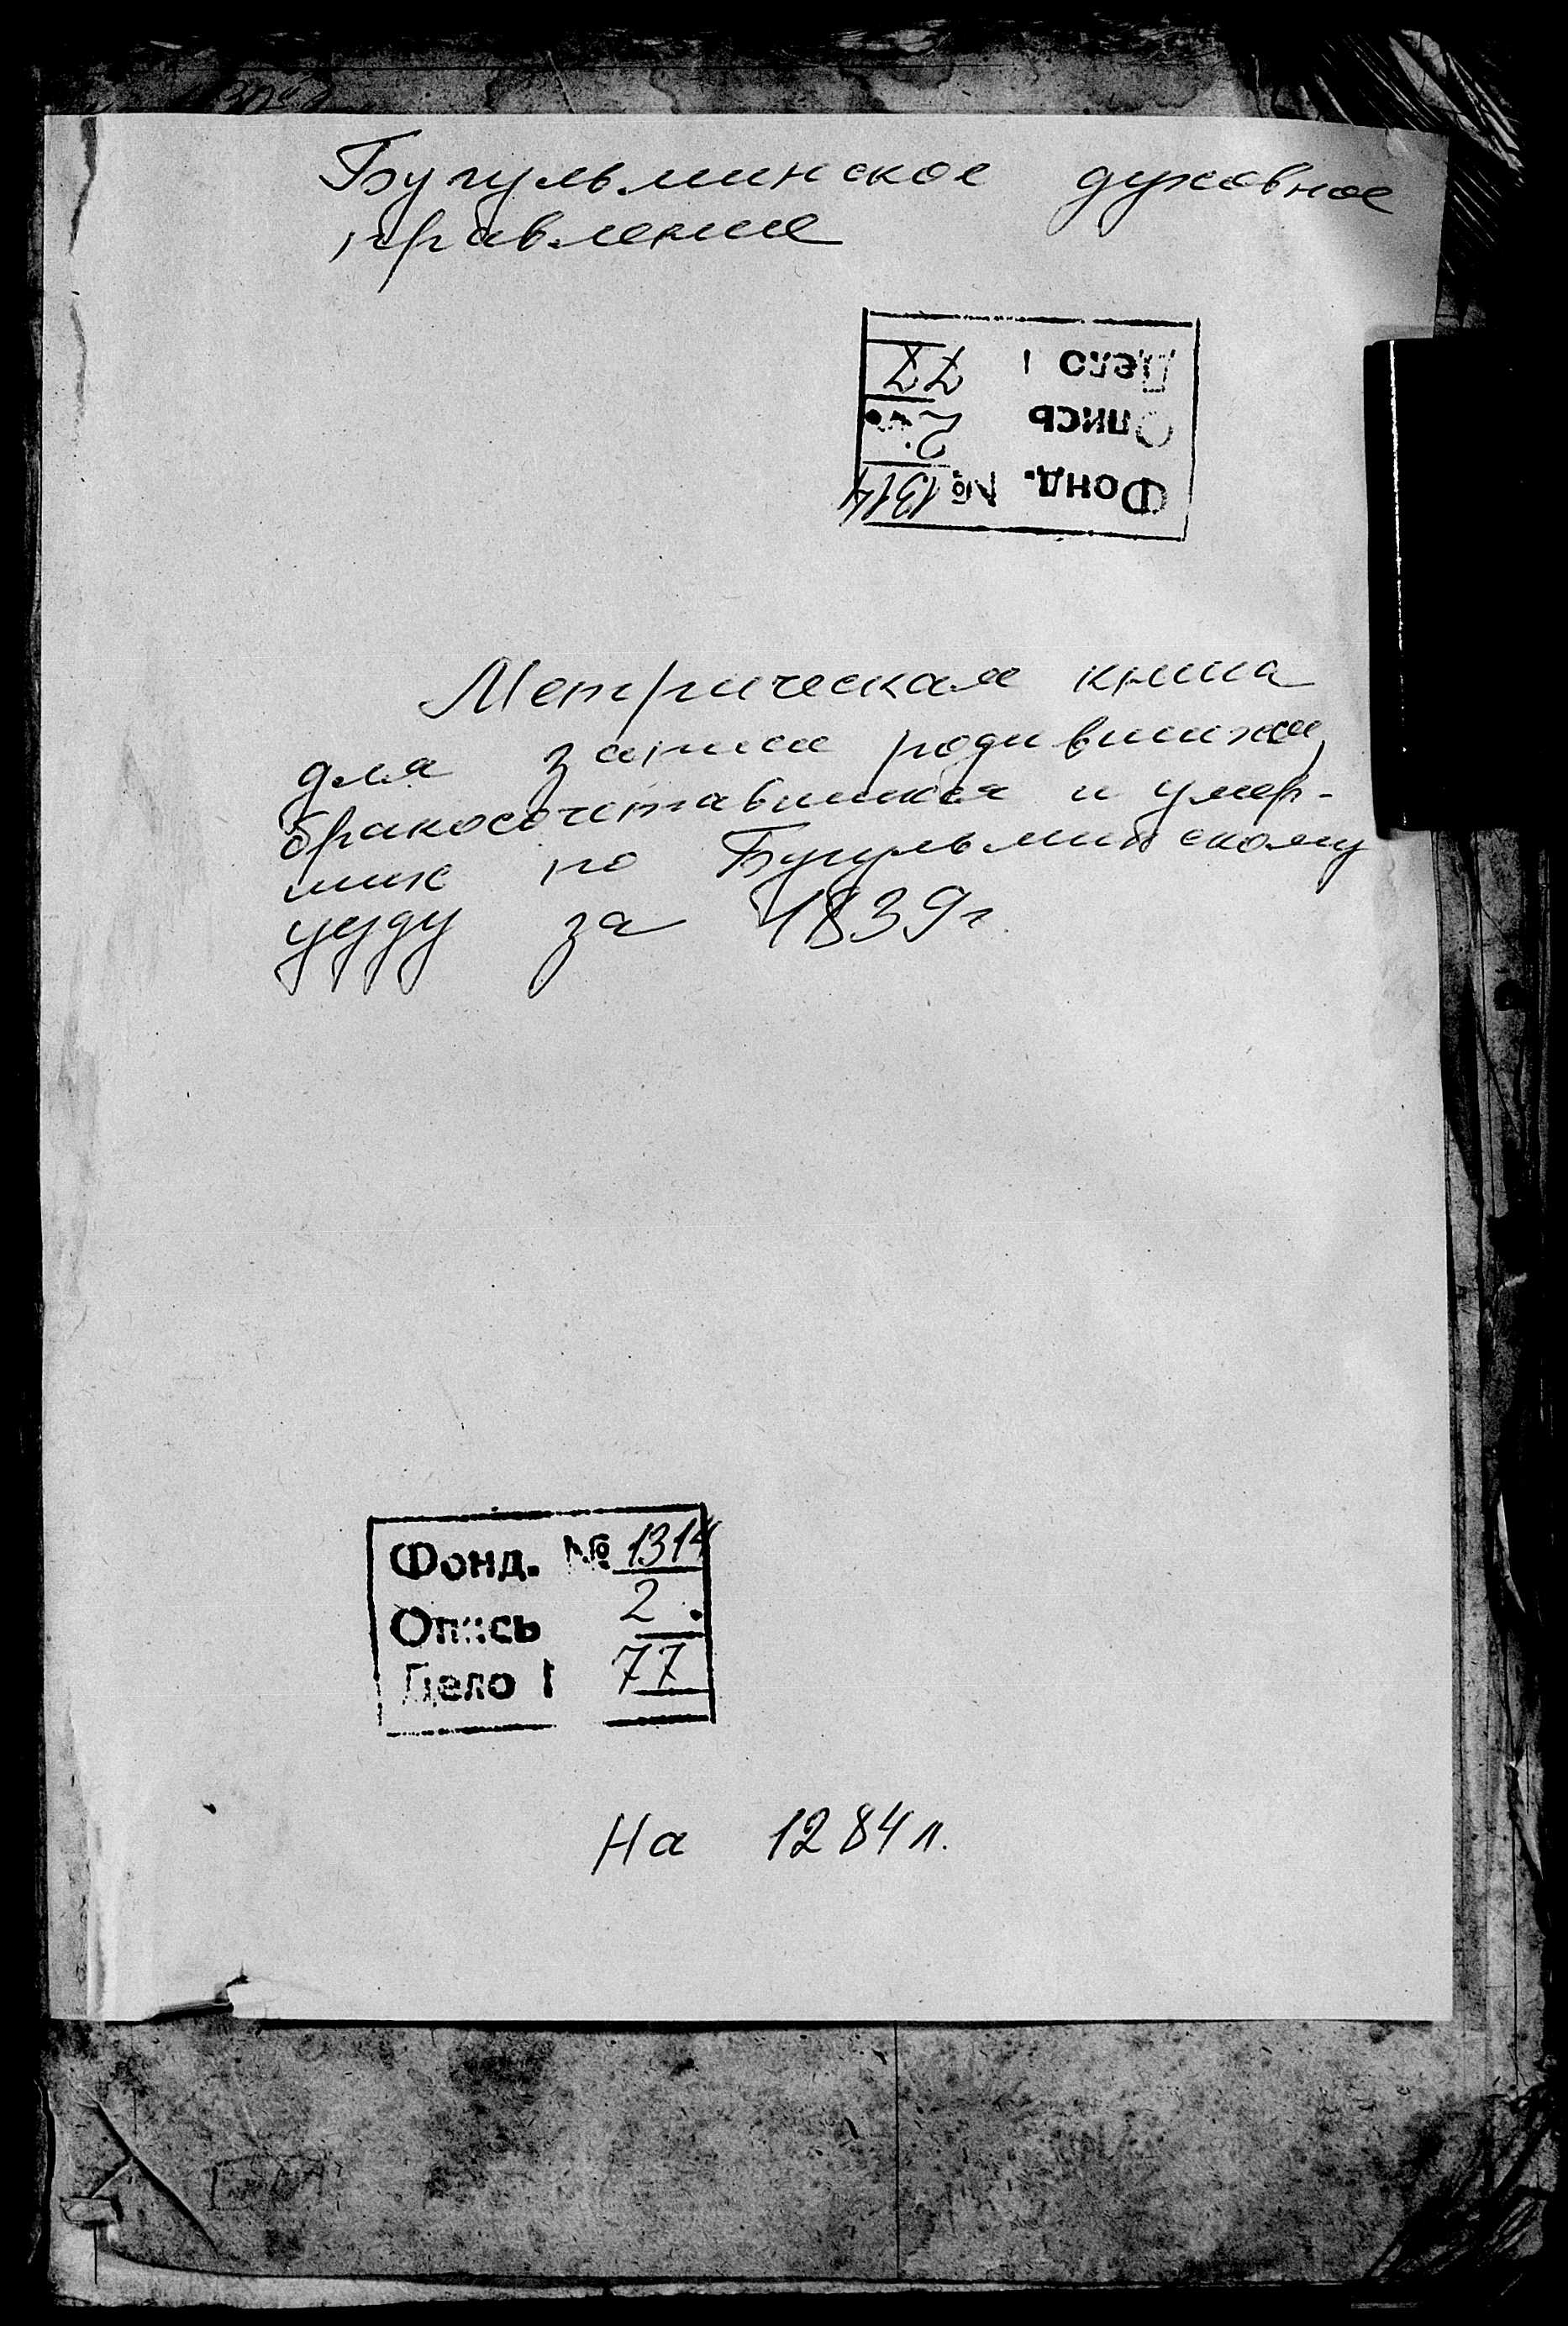 Бугульминское духовное
правление
Дело 77
Опись 2
Фонд. № 1314
Метрическая книга
для записи родившихся,
бракосочетавшихся и умер-
ших по Бугульминскому
уезду за 1839 г.
Фонд. № 1314
Опись 2.
Дело 77
На 1284 л.